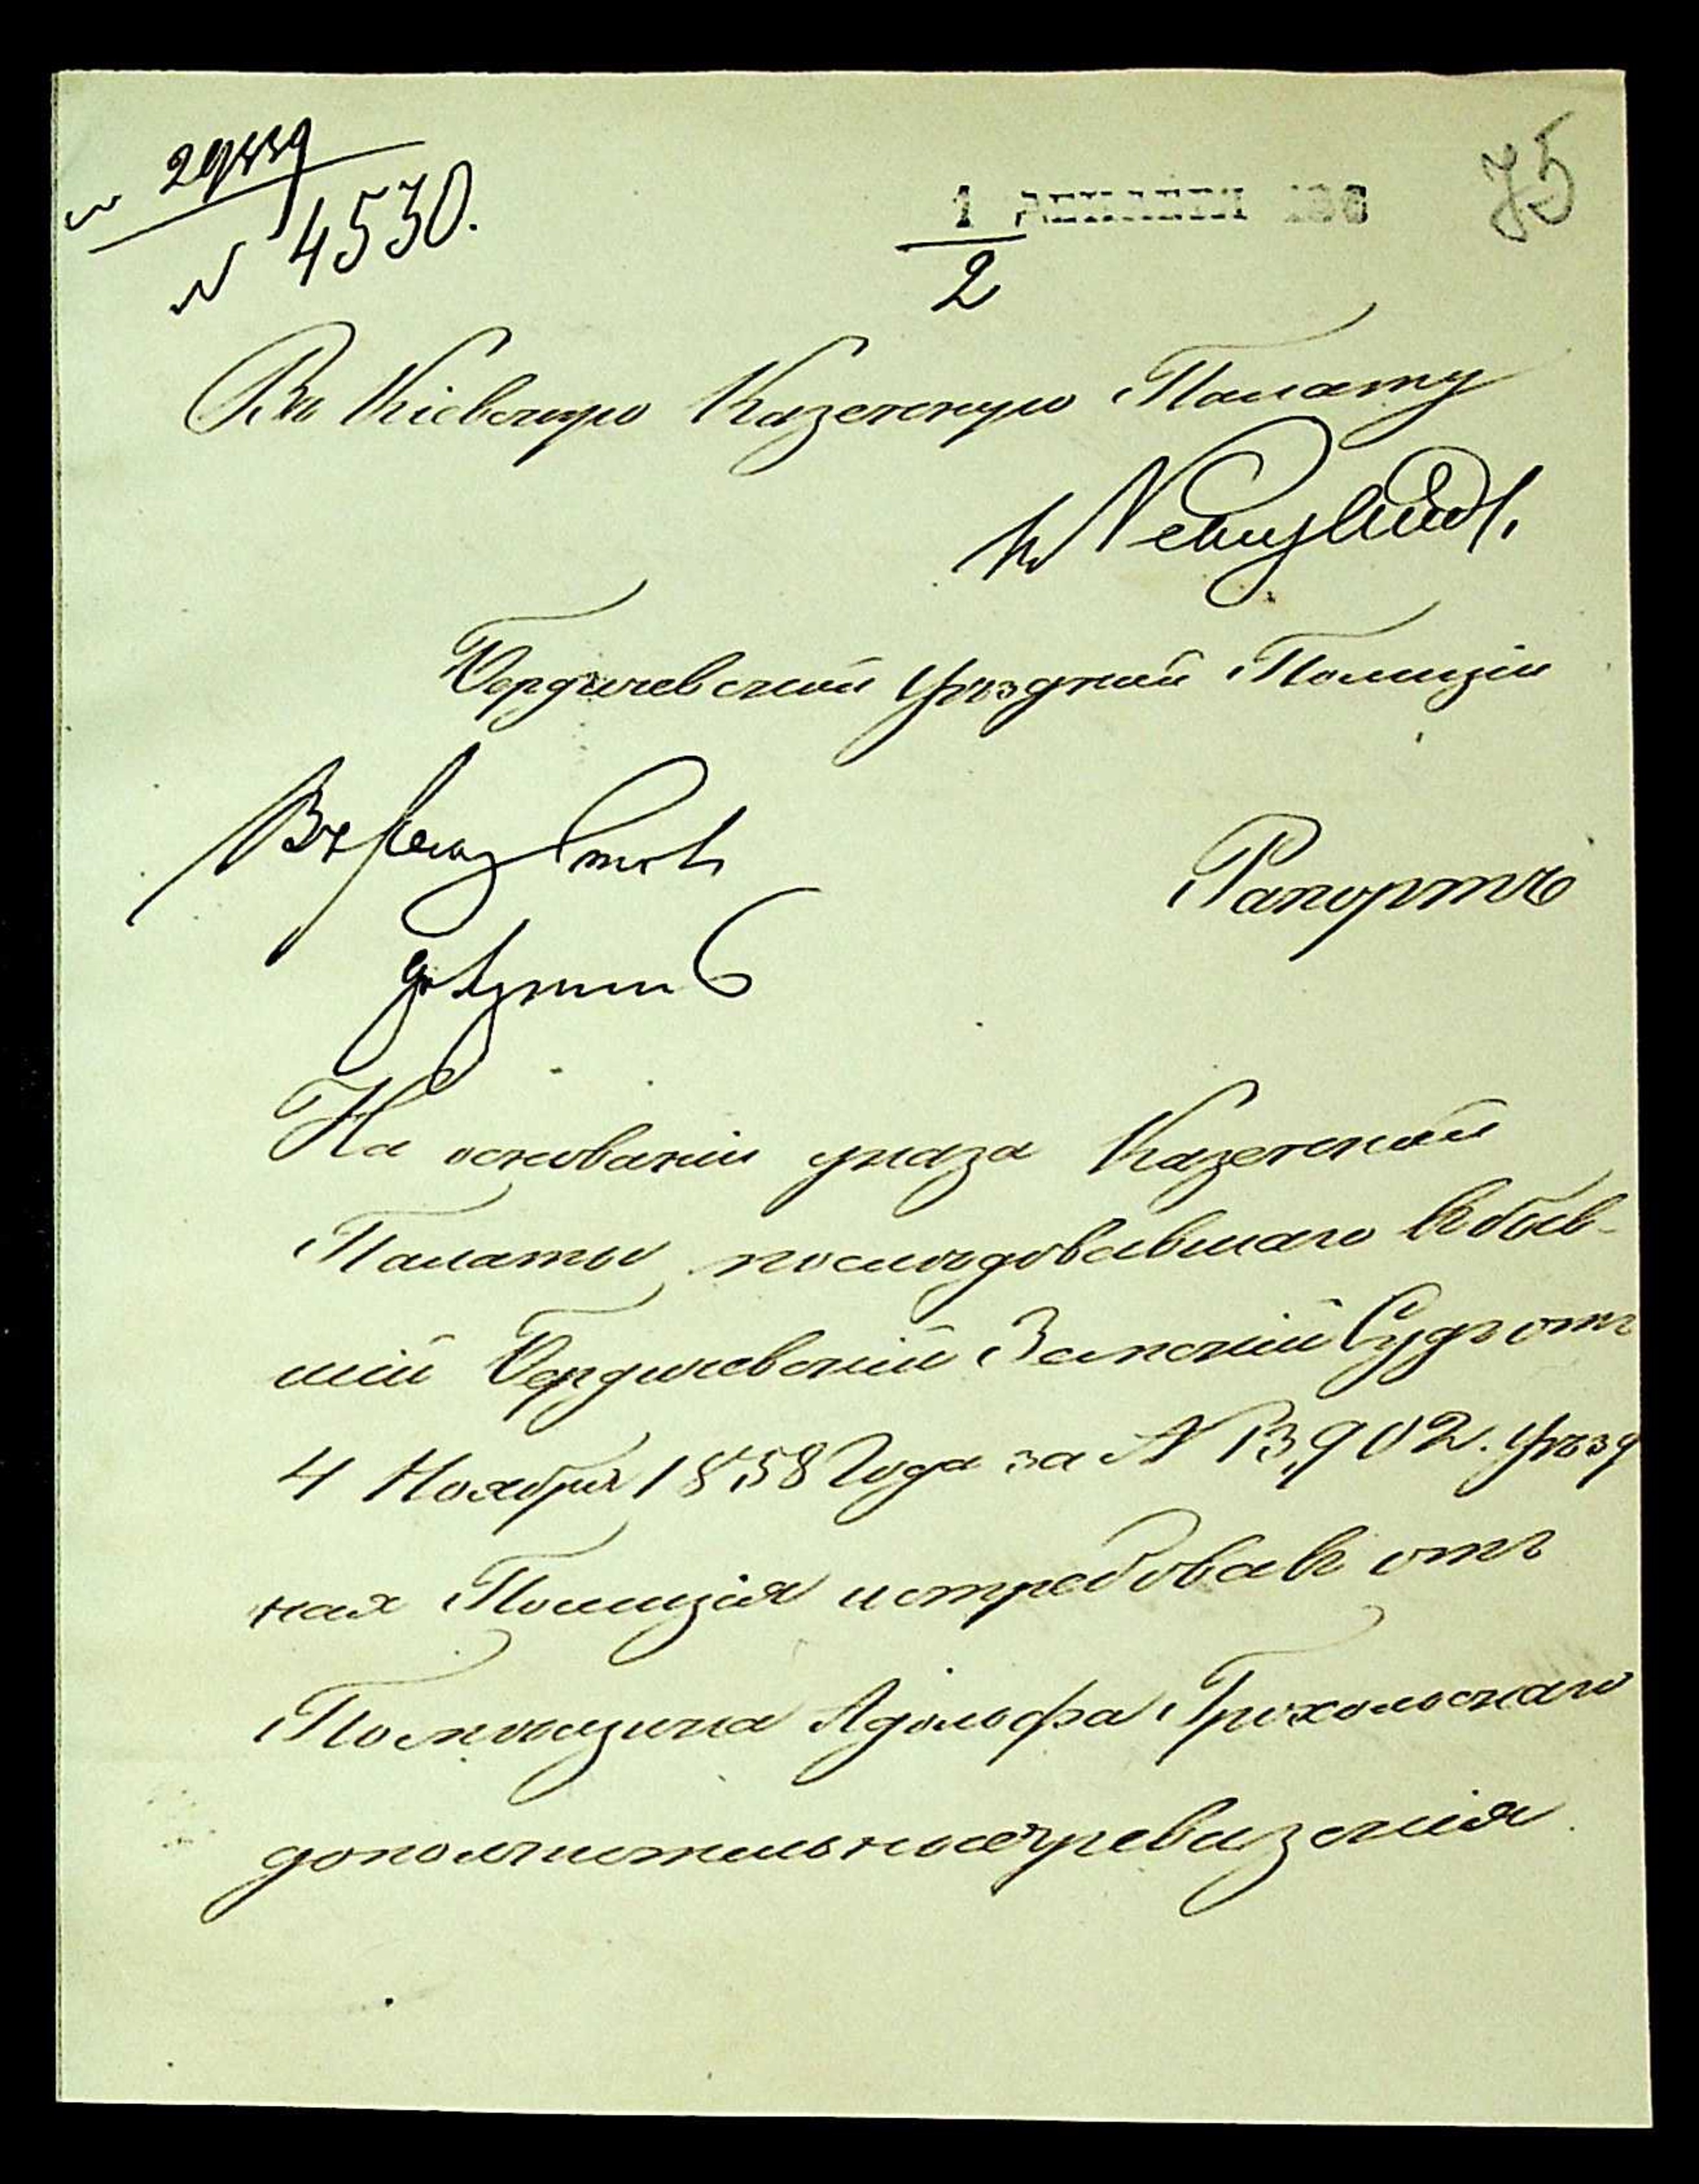 № 4530.
75
1
2
Въ Кіевскую Казенную Палату
Бердичевской Уѣздной Полиціи
Рапортъ
На основаніи указа Казенной
Палаты послѣдовавшаго въ быв-
шій Бердичевскій Земскій Судъ отъ
4 Ноября 1858 Года за № 13,902. Уѣзд
ная Полиція истребовавъ отъ
Помѣщика Адольфа Грохольскаго
дополнительные ревизскія